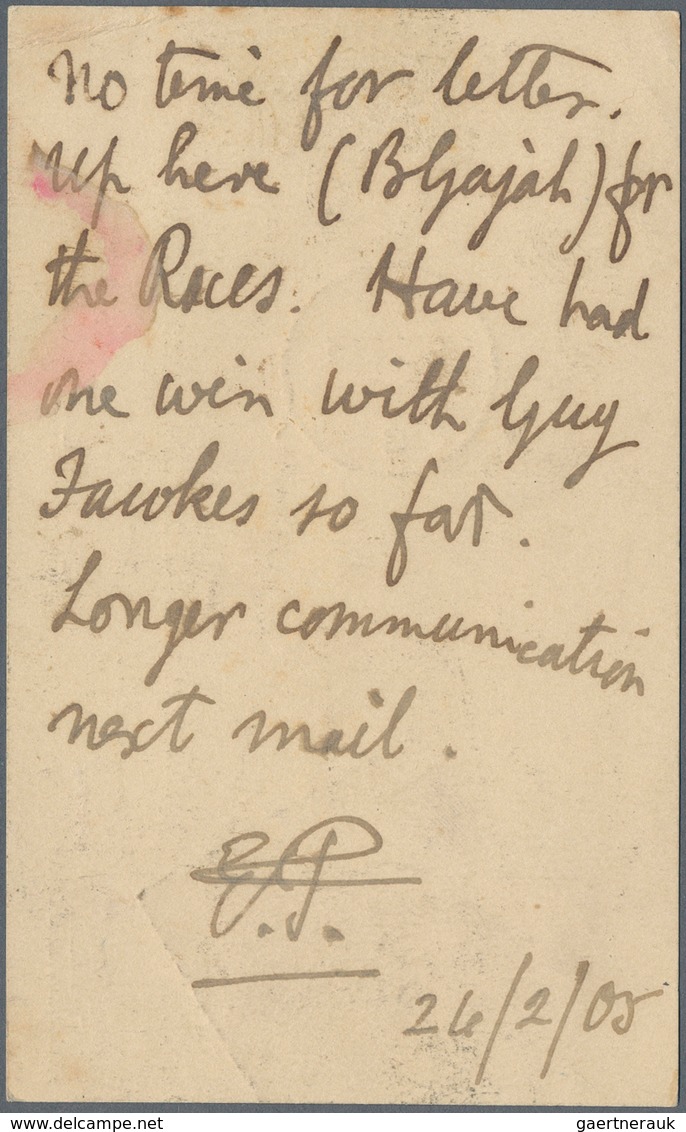 No time for letter.
Up here (B Gajah) for
the Races. Have had
one win with Guy
Fawkes so far.
Longer communication
next mail.
E.P.
26/2/05
DELCAMPE.NET
gaertnerauk